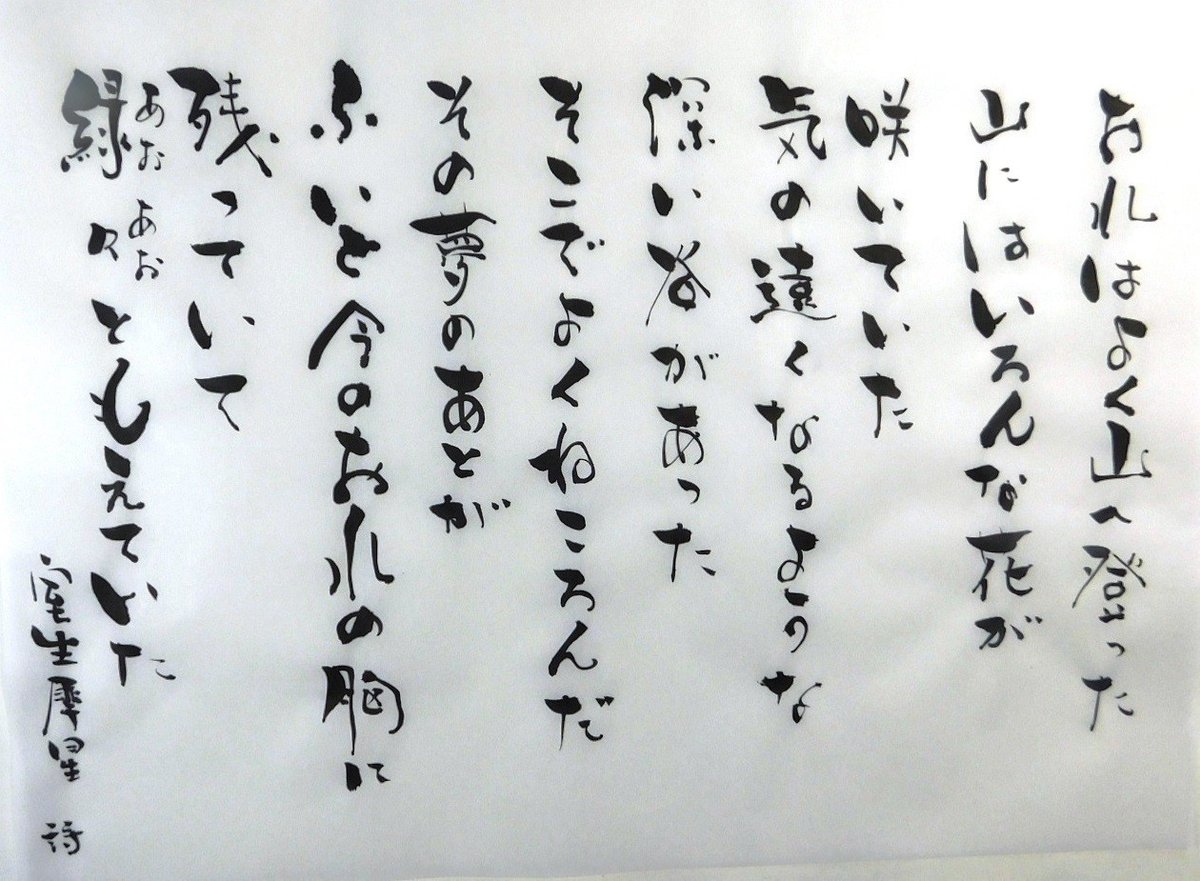 おれはよく山へ登った
山にはいろんな花が
咲いていた
気の遠くなるような
深い谷があった
そこでよくねころんだ
その夢のあとが
ふいと今のおれの胸に
残っていて
あお あお
緑々ともえていた
室生犀星 詩